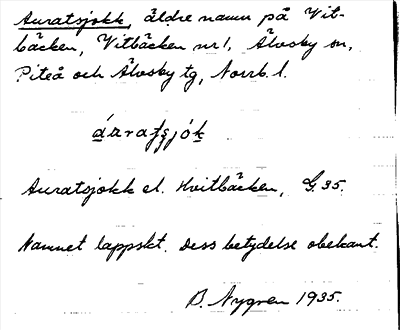 Auratsjokk, äldre namn på Vit-
bäcken, Vitbäcken nr 1, Älvsby sn,
Piteå och Älvsby tg, Norrb. l.
áuratsjók
Auratsjokk el. Hvitbäcken, G 35.
Namnet lappskt. Dess betydelse obekant.
B. Nygren 1935.